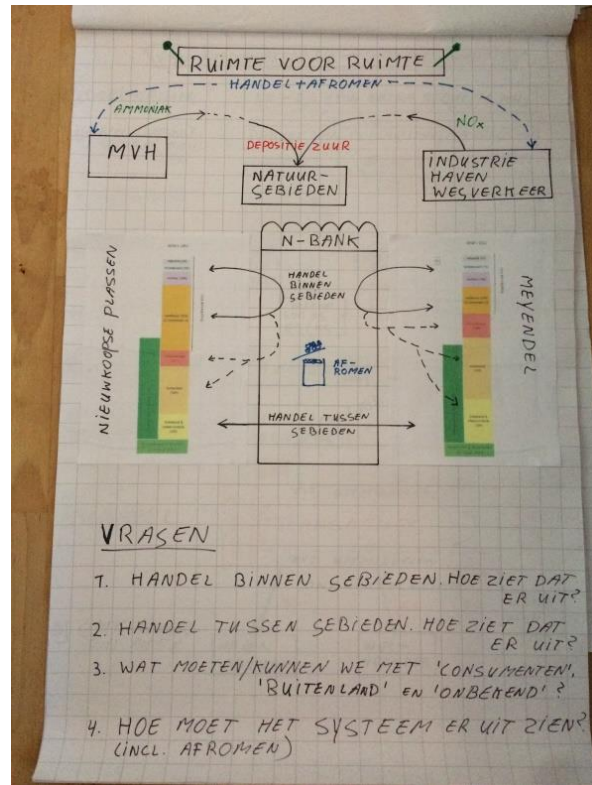 RUIMTE VOOR RUIMTE
HANDEL + AFROMEN
AMMONIAK
NOx
MVH
DEPOSITIE ZUUR
NATUUR-
GEBIEDEN
INDUSTRIE
HAVEN
WEGVERKEER
N-BANK
NIEUWKOOPSE PLASSEN
HANDEL
BINNEN
GEBIEDEN
MEYENDEL
AF-
ROMEN
HANDEL TUSSEN
GEBIEDEN
VRAGEN
1. HANDEL BINNEN GEBIEDEN. HOE ZIET DAT
ER UIT?
2. HANDEL TUSSEN GEBIEDEN. HOE ZIET DAT
ER UIT?
3. WAT MOETEN/KUNNEN WE MET 'CONSUMENTEN',
'BUITENLAND' EN 'ONBEKEND'?
4. HOE MOET HET SYSTEEM ER UIT ZIEN?
(INCL. AFROMEN)